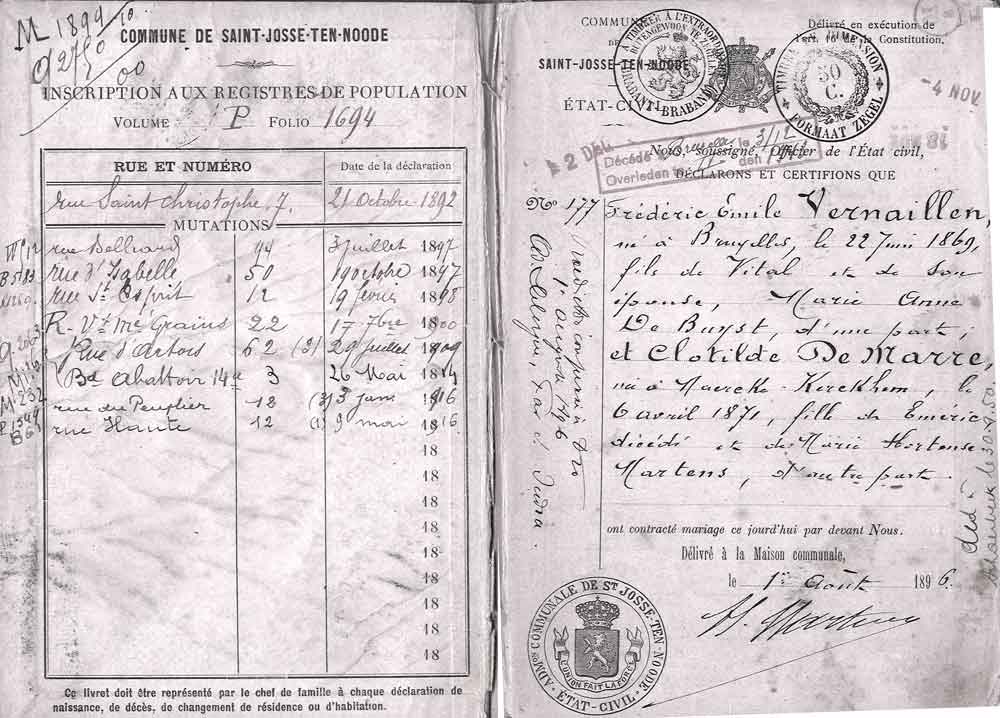 M 1899
COMMUNE DE SAINT-JOSSE-TEN-NOODE
INSCRIPTION AUX REGISTRES DE POPULATION
VOLUME P FOLIO 1694
RUE ET NUMÉRO Date de la déclaration
rue Saint Christophe, 7. 21 Octobre 1892
MUTATIONS
rue Belliard 44 3 juillet 1897
rue d'Isabelle 50 19 octobre 1897
rue St Esprit 12 19 février 1898
R. Vx Mé Grains 22 17 7bre 1800
Rue d'Artois 62 (3) 29 juillet 1809
Bd Abattoir 14a 3 26 Mai 1814
rue du Peuplier 18 (3) 3 janv 1816
rue Haute 12 (1) 9 mai 1816
18
18
18
18
18
18
18
18
18
Ce livret doit être représenté par le chef de famille à chaque déclaration de
naissance, de décès, de changement de résidence ou d'habitation.
COMMUNE
DE
SAINT-JOSSE-TEN-NOODE
ÉTAT-CIVIL
Délivré en exécution de
la Constitution.
TIMBRE DIMENSION
50
C.
FORMAAT ZEGEL
4 NOV
Décédé à Bruxelles le 3/12
Overleden den
Nous, soussigné, Officier de l'État civil,
DÉCLARONS ET CERTIFIONS QUE
No 177
Frédéric Émile Vernaillen,
né à Bruxelles, le 22 Juin 1869,
fils de Vital et de son
épouse, Marie Anne
De Buyst, d'une part;
et Clotilde De Marre,
née à Maercke-Kerckhem, le
6 avril 1871, fille de Eméric
décédé et de Marie Hortense
Martens, d'autre part.
ont contracté mariage ce jourd'hui par devant Nous.
Délivré à la Maison communale,
le 1er Août 1896.
ADMon COMMUNALE DE ST JOSSE-TEN-NOODE
L'UNION FAIT LA FORCE
ÉTAT-CIVIL